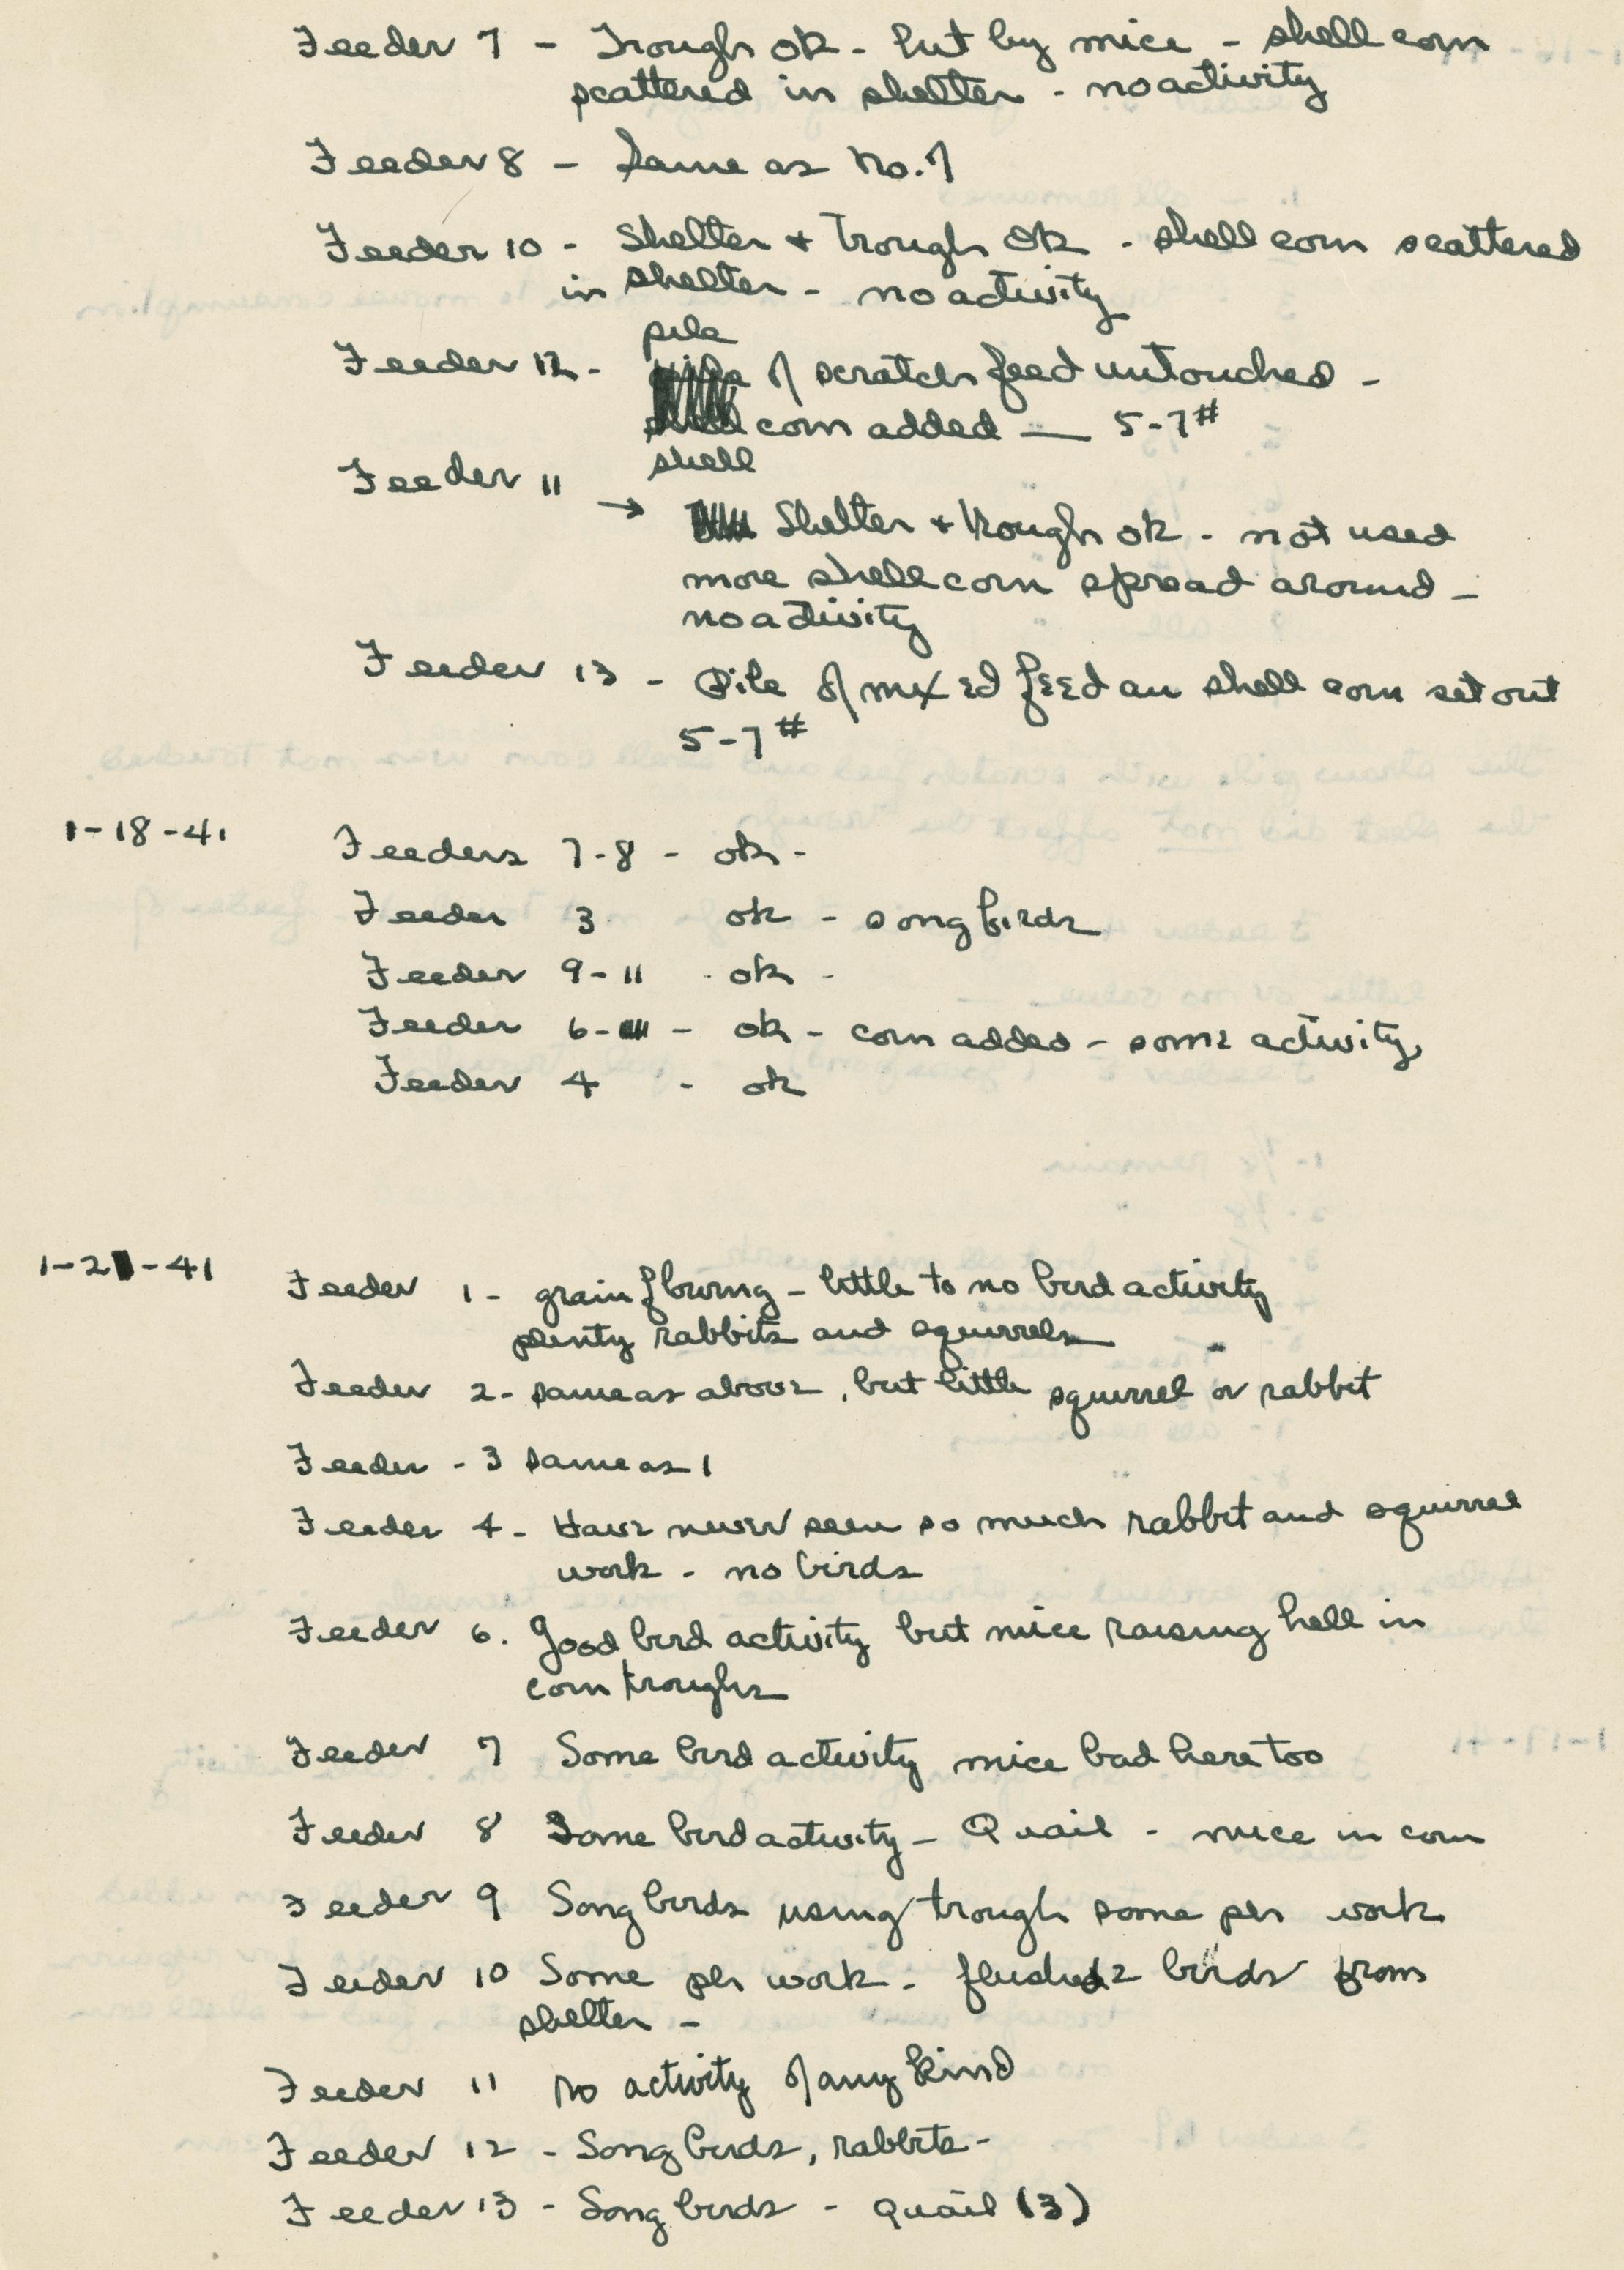 Feeder 7 - Trough ok - hit by mice - shell corn
scattered in shelter - no activity
Feeder 8 - Same as No. 7
Feeder 10 - Shelter + Trough Ok - shell corn scattered
in shelter - no activity
pile
Feeder 12 - of scratch feed untouched -
corn added — 5-7#
shell
Feeder 11 →
Shelter + trough ok - not used
more shell corn spread around -
no activity
Feeder 13 - Pile of mixed feed an shell corn set out
5-7#
1-18-41 Feeders 7-8 - ok -
Feeder 3 ok - song birds
Feeder 9-11 - ok -
Feeder 6- - ok - corn added - some activity
Feeder 4 - ok
1-2 -41 Feeder 1 - grain flowing - little to no bird activity
plenty rabbits and squirrels
Feeder 2 - same as above, but little squirrel or rabbit
Feeder - 3 same as 1
Feeder 4 - Have never seen so much rabbit and squirrel
work - no birds
Feeder 6. Good bird activity but mice raising hell in
corn troughs
Feeder 7 Some bird activity mice bad here too
Feeder 8 Some bird activity - Quail - mice in corn
Feeder 9 Song birds using trough some ph work
Feeder 10 Some ph work - flushed 2 birds from
shelter -
Feeder 11 No activity of any kind
Feeder 12 - Song birds, rabbits -
Feeder 13 - Song birds - quail (3)